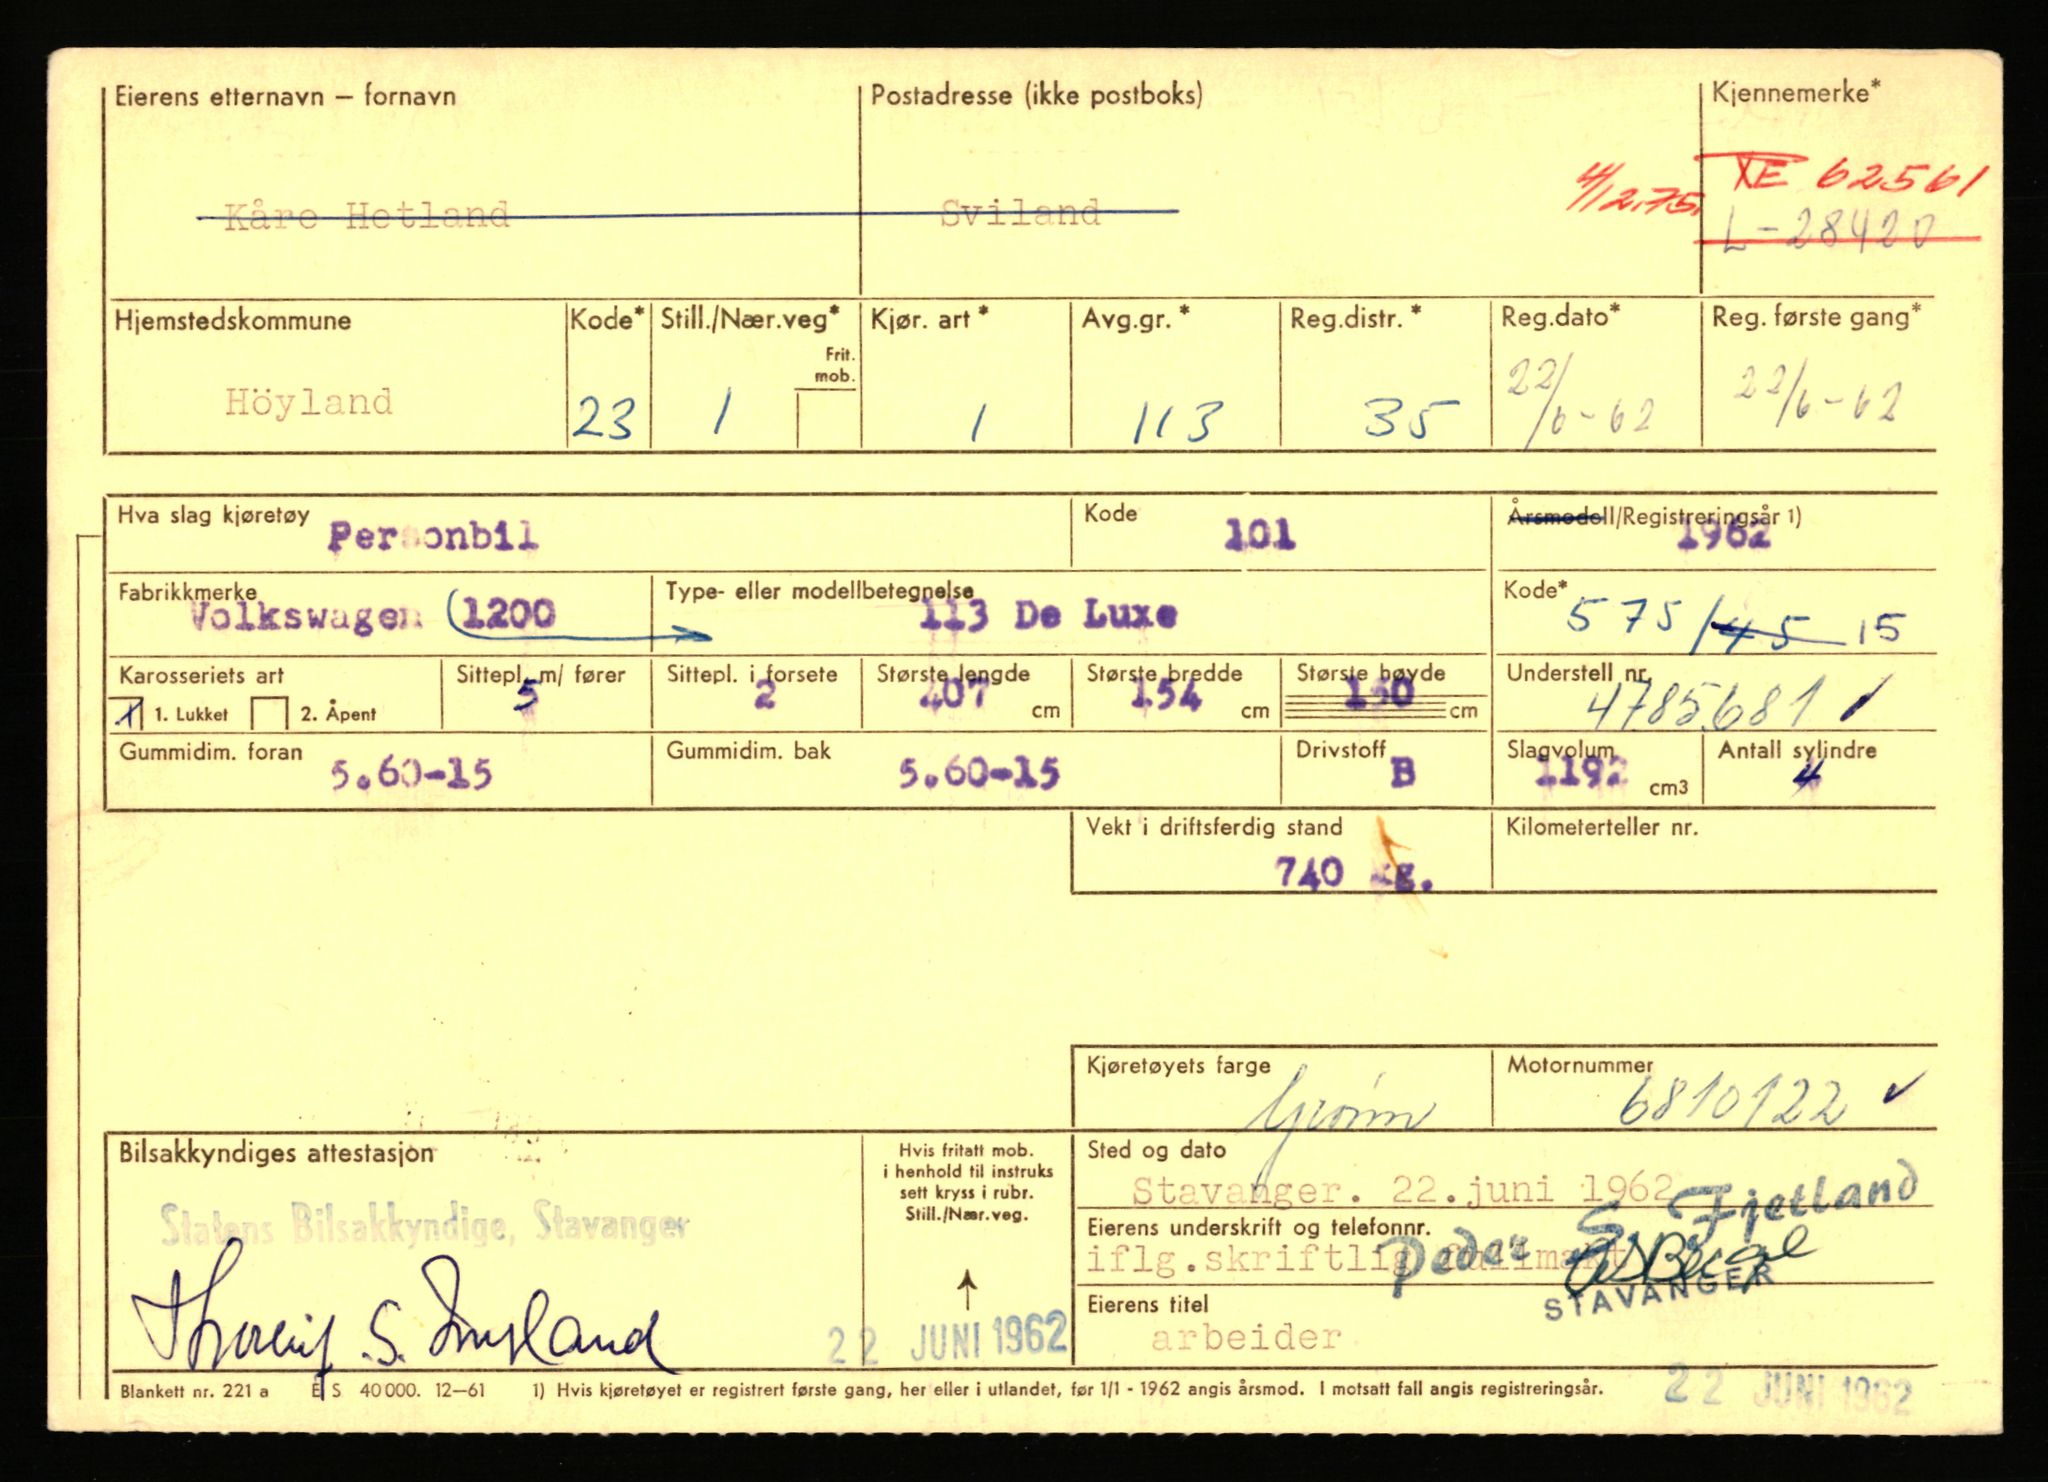 Eierens etternavn – fornavn
Postadresse (ikke postboks)
Kjennemerke*
4/12.75.
XE 62561
Kåre Hetland
Sviland
L-28420
Hjemstedskommune
Kode*
Still./Nær.veg*
Frit.
mob.
Kjør. art *
Avg.gr. *
Reg.distr. *
Reg.dato*
Reg. første gang*
Höyland
23
1
1
113
35
22/6-62
22/6-62
Hva slag kjøretøy
Personbil
Kode
101
Årsmodell/Registreringsår 1)
1962
Fabrikkmerke
Volkswagen (1200
Type- eller modellbetegnelse
113 De Luxe
Kode*
575/45 15
Karosseriets art
1. Lukket
2. Åpent
Sittepl. m/ fører
5
Sittepl. i forsete
2
Største lengde
407
cm
Største bredde
154
cm
Største høyde
150
cm
Understell nr.
4785681
Gummidim. foran
5.60-15
Gummidim. bak
5.60-15
Drivstoff
B
Slagvolum
1192
cm3
Antall sylindre
4
Vekt i driftsferdig stand
740 kg.
Kilometerteller nr.
Kjøretøyets farge
Grønn
Motornummer
6810122
Bilsakkyndiges attestasjon
Statens Bilsakkyndige, Stavanger
Hvis fritatt mob.
i henhold til instruks
sett kryss i rubr.
Still./Nær.veg.
22 JUNI 1962
Sted og dato
Stavanger. 22.juni 1962
Eierens underskrift og telefonnr.
Peder S. Fjetland
iflg.skriftlig fullmakt
STAVANGER
Eierens titel
arbeider
Blankett nr. 221 a E S 40 000. 12–61 1) Hvis kjøretøyet er registrert første gang, her eller i utlandet, før 1/1 - 1962 angis årsmod. I motsatt fall angis registreringsår.
22 JUNI 1962